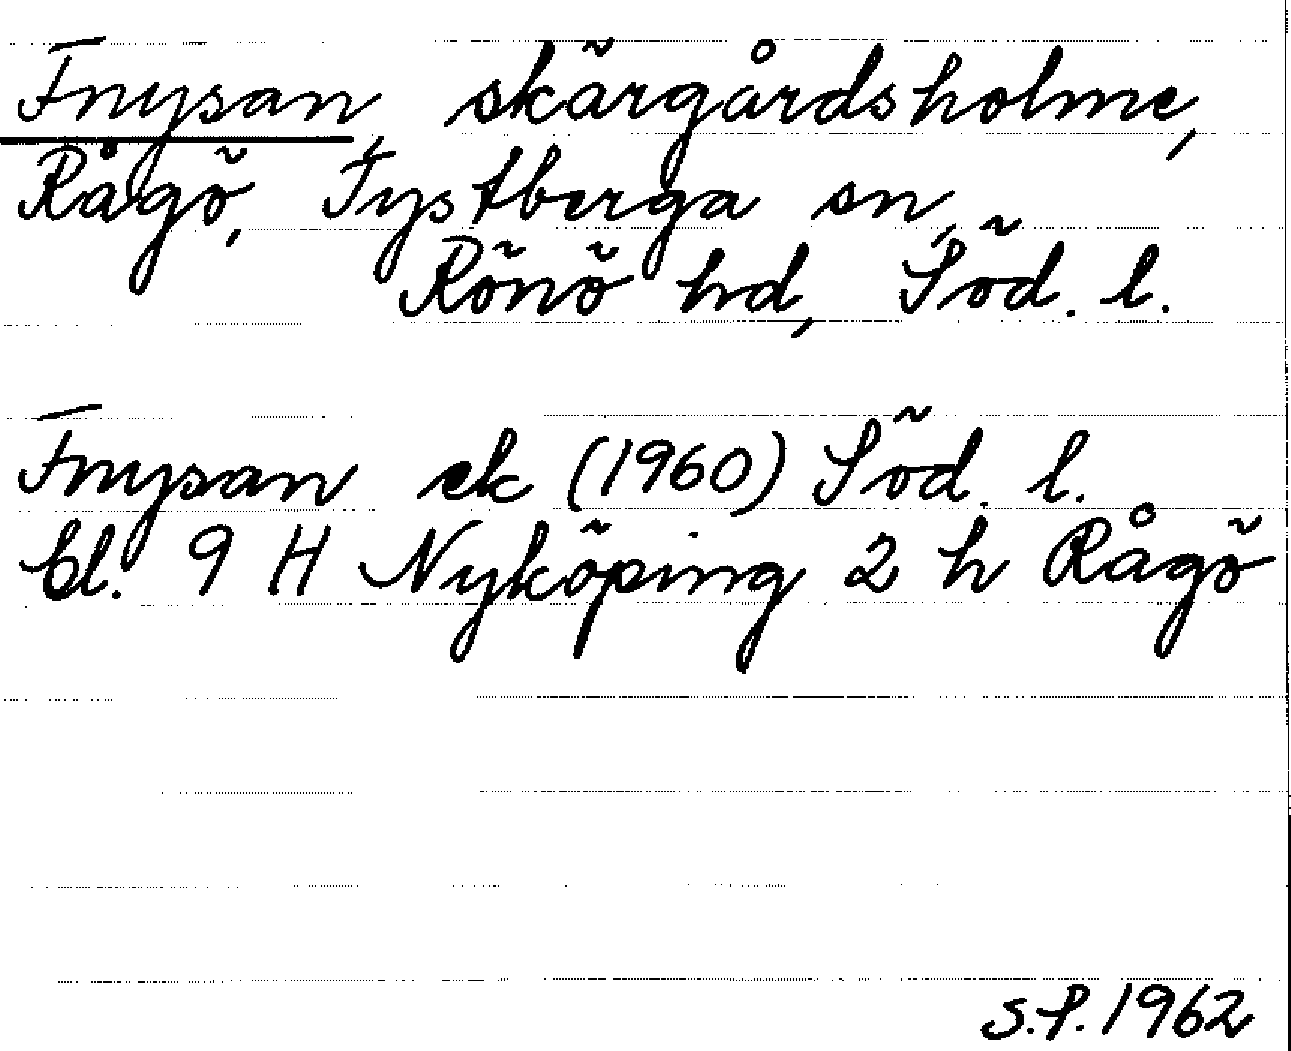 Fnysan, skärgårdsholme,
Rågö, Tystberga sn,
Rönö hd, Söd. l.
Fnysan ek (1960) Söd. l.
Bl. 9 H Nyköping 2 h Rågö
S.P. 1962